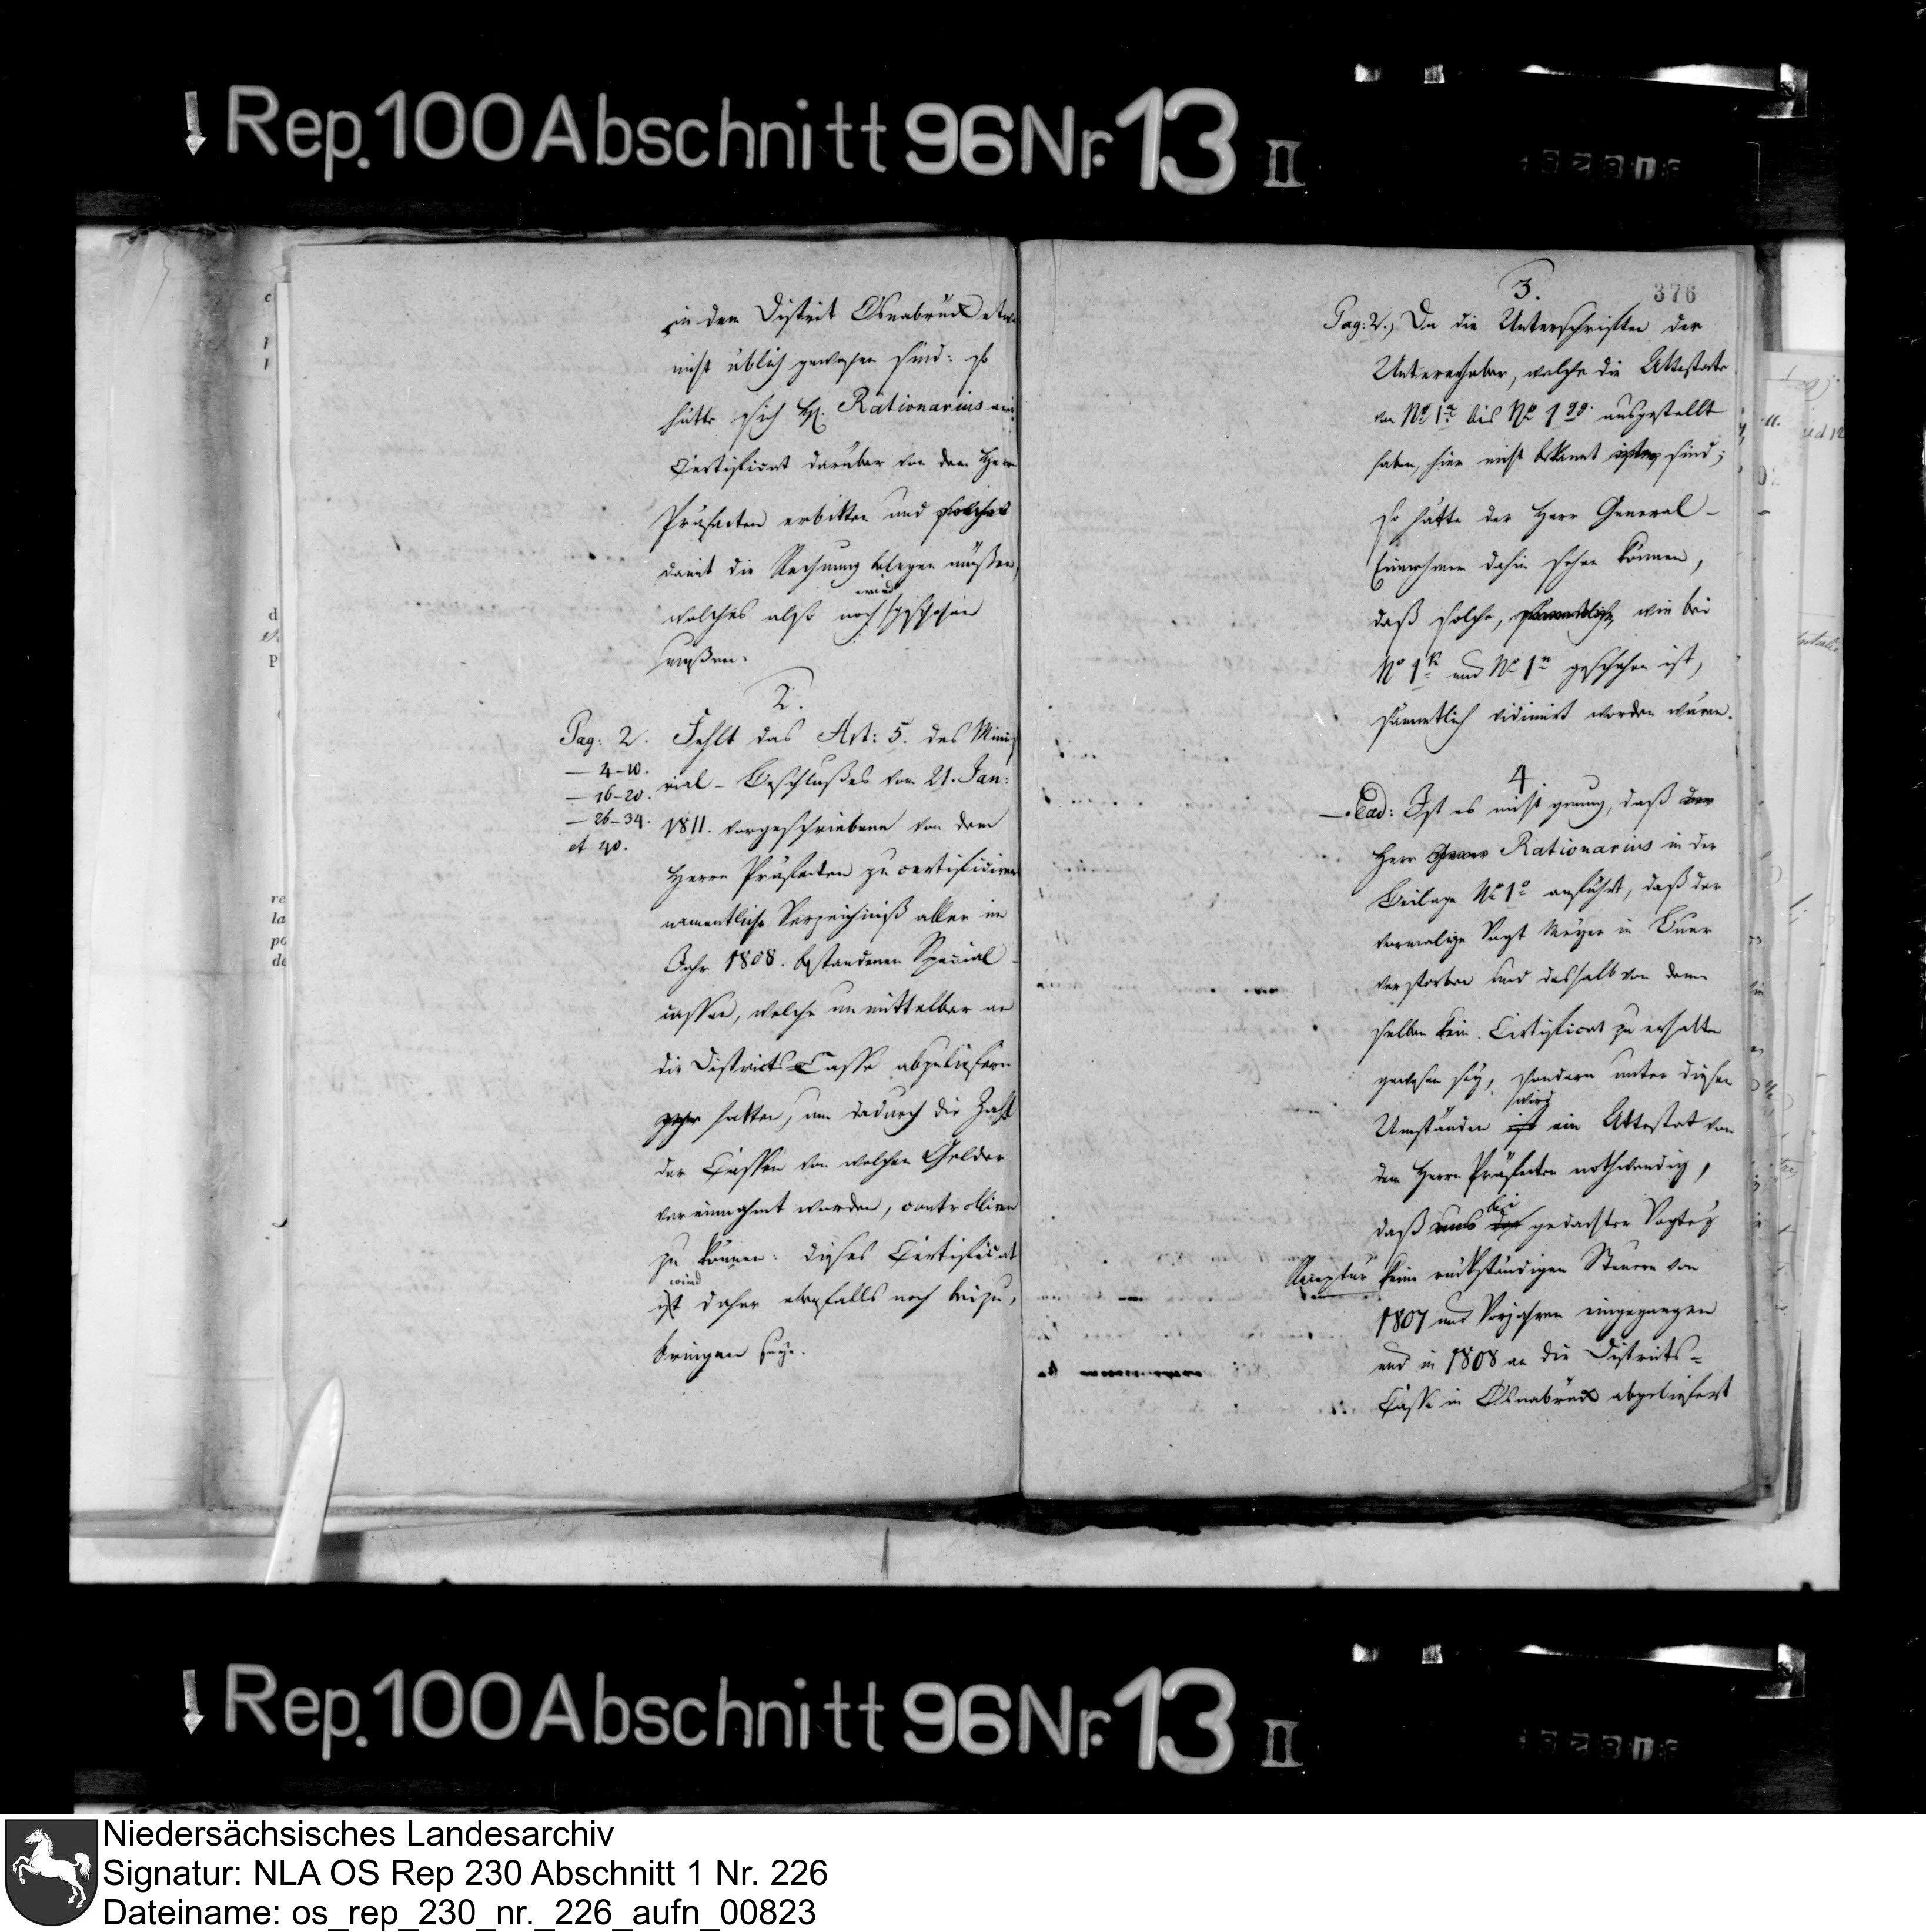 Rep. 100 Abschnitt 96 Nr. 13 II
in dem District Osnabrück etwa
nicht üblich gewesen sind: so
hätte sich H. Rationarius ein
Certificat darüber von dem Herrn
Präfecten erbitten und solches
damit die Rechnung belegen müßen,
wird
welches also noch geschehen
müßen.
2.
Pag: 2. Fehlt das Art: 5. des Mini-
— 4-10.
— 16-20.
— 26-34.
et 40.
rial-Beschlußes vom 21. Jan:
1811. vorgeschriebene von dem
Herrn Präfecten zu certificirende
namentliche Verzeichniß aller im
Jahr 1808. bestandenen Special-
cassen, welche unmittelbar an
die Districts-Casse abzuliefern
hatten, um dadurch die Zahl
der Cassen von welchen Gelder
vereinnahmt worden, controlliren
zu können: dieses Certificat
wird
ist daher ebenfalls noch beizu-
bringen seyn.
376
3.
Pag: 2.) Da die Unterschriften der
Unterschreiber, welche die Attestate
von No 1a bis No 1 ausgestellt
haben, hier nicht bekannt sind;
so hätte der Herr General-
Einnehmer dahin sehen können,
daß solche, wie bei
No 1k und No 1n geschehen ist,
sämmtlich vidimirt worden wären.
4.
—. Ead: Ist es nicht genung, daß der
Herr Rationarius in der
Beilage No 1o anführt, daß der
vormalige Vogt Meyer in Buer
verstorben und deshalb von dem-
selben kein Certificat zu erhalten
gewesen sey, sondern unter diesen
wird
Umständen ist ein Attestat von
dem Herrn Präfecten nothwendig,
bei
daß gedachter Vogtey
Receptur keine rückständigen Steuern von
1807 und Vorjahren eingegangen
und in 1808 an die Districts-
Casse in Osnabrück abgeliefert
Rep. 100 Abschnitt 96 Nr. 13 II
Niedersächsisches Landesarchiv
Signatur: NLA OS Rep 230 Abschnitt 1 Nr. 226
Dateiname: os_rep_230_nr._226_aufn_00823